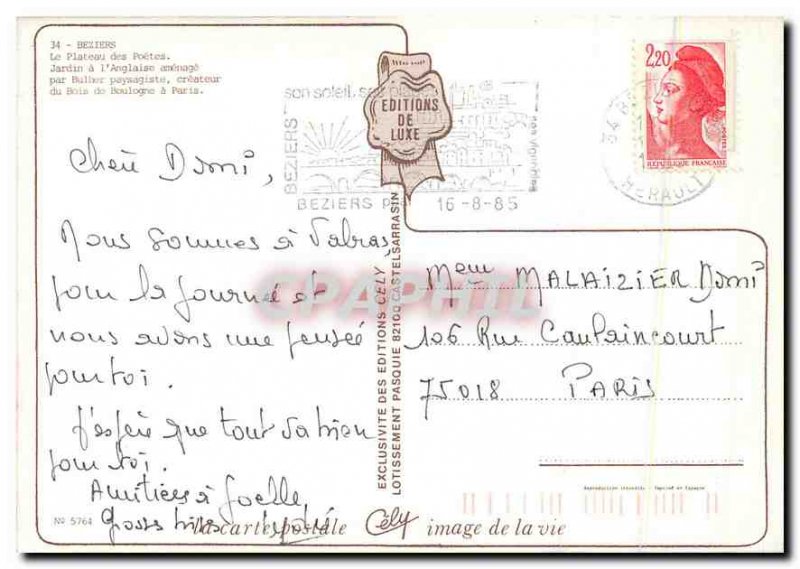 34 - BEZIERS
Le Plateau des Poëtes.
Jardin à l'Anglaise aménagé
par Bulher paysagiste, créateur
du Bois de Boulogne à Paris.
son soleil, ses plages
BEZIERS
BEZIERS
16-8-85
EDITIONS
DE
LUXE
2,20
REPUBLIQUE FRANÇAISE
34
HERAULT
Nous sommes à Valras,
pour la journée et
nous avons une pensée
pour toi.
J'espère que tout va bien
pour toi.
Amitiées à Joelle
Gosses bises
EXCLUSIVITE DES EDITIONS CELY
LOTISSEMENT PASQUIE 82100 CASTELSARRASIN
CPAPHIL
Meme MALAIZIER Domi
106 Rue Caulaincourt
75018 PARIS
Reproduction interdite
Nº 5764
la carte postale Cély image de la vie